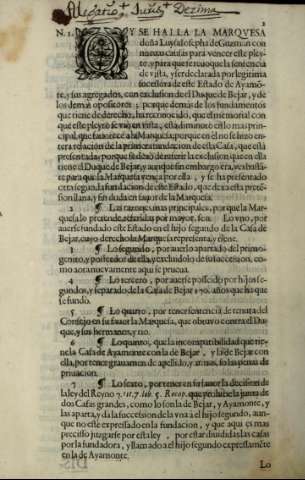 2
N. 1.
OY SE HALLA LA MARQVESA
doña Luysa Iosepha de Guzman con
nueuas causas para vencer este pley-
to, y para que se reuoque la sentencia
de vista, y ser declarada por legitima
sucessora de este Estado de Ayamon-
te, y sus agregados, con exclusion del Duque de Bejar, y de
los demas opositores; porque demas de los fundamentos
que tiene de derecho, ha reconocido, que el memorial con
que este pleyto se vio en vista, està diminuto en lo mas prin-
cipal, que fauorece a la Marquesa porque en el no se hizo en-
tera relacion de la primera fundacion de esta Casa, que està
presentada; porque se dexò de referir la exclusion que en ella
tiene el Duque de Bejar, y aunque sin embargo era, y es basta-
te para que la Marquesa venza por ella, y se ha presentado
otra segunda fundacion de este Estado, que dexa esta preten-
sion llana, y sin duda en fauor de la Marquesa.
2 ¶ Las razones mas principales, por que la Mar-
quesa lo pretende, referidas por mayor, son. Lo vno, por
auerse fundado este Estado en el hijo segundo de la Casa de
Bejar, cuyo derecho la Marquesa representa, y tiene.
3 ¶ Lo segundo, por auerlo apartado del primo-
genito, y posteedor de ella, y excluidolo de su sucession, co-
mo aora nueuamente aqui se prueua.
4 ¶ Lo tercero, por auerse posseido por hijos se-
gundos, y separado de la Casa de Bejar 170. años, que ha que
se fundò.
5 ¶ Lo quarto, por tener sentencia de tenuta del
Consejo en su fauor la Marquesa, que obtuvo contra el Du-
que, y sus hermanos, y no.
6 ¶ Lo quinto, que la incompatibilidad que tie-
ne la Casa de Ayamonte con la de Bejar, y la de Bejar con
ella, por tener grauamen de apellido, y armas, so las penas de
priuacion.
7 ¶ Lo sexto, por tener en su fauor la decision de
la ley del Reyno 7. tit. 7. lib. 5. Recop. que prohibe la junta de
dos Casas grandes, como lo son la de Bejar, y Ayamonte, y
las aparta, y da la sucession de la vna à el hijo segundo, aun-
que no este expressado en la fundacion, y que aqui es mas
precisso juzgarse por esta ley, por estar diuididas las casas
por la fundadora, y llamado a el hijo segundo expressamẽ-
te en la de Ayamonte.
Lo